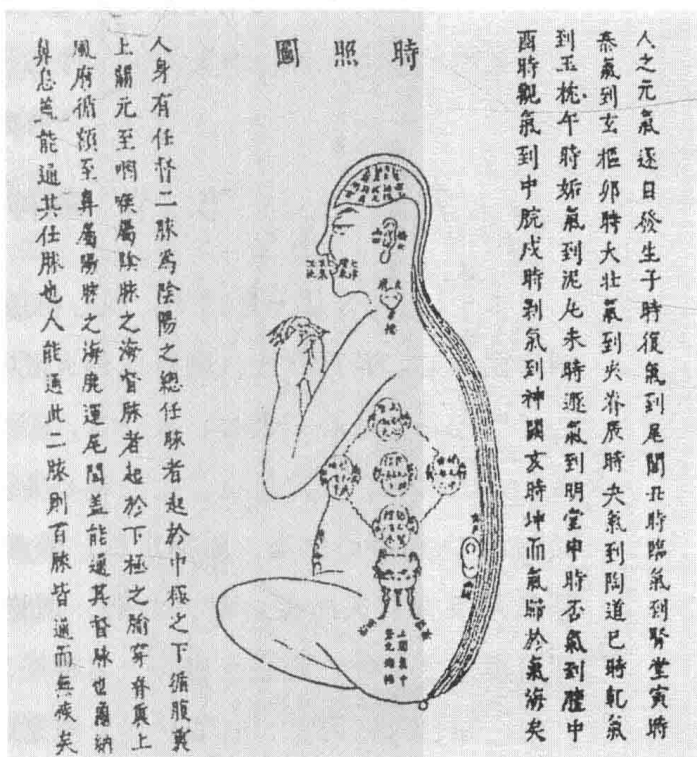 人之元氣逐日發生子時復氣到尾閭丑時臨氣到腎堂寅時
泰氣到玄樞卯時大壯氣到夾脊辰時夬氣到陶道巳時乾氣
到玉枕午時姤氣到泥丸未時遯氣到明堂申時否氣到膻中
酉時觀氣到中脘戌時剥氣到神闕亥時坤而氣歸於氣海矣
時照圖
人身有任督二脉為陰陽之總任脉者起於中極之下循腹裏
上關元至咽喉屬陰脉之海督脉者起於下極之腧穿脊裏上
風府循額至鼻屬陽脉之海鹿運尾閭盖能通其督脉也龜納
鼻息盖能通其任脉也人能通此二脉則百脉皆通而無疾矣